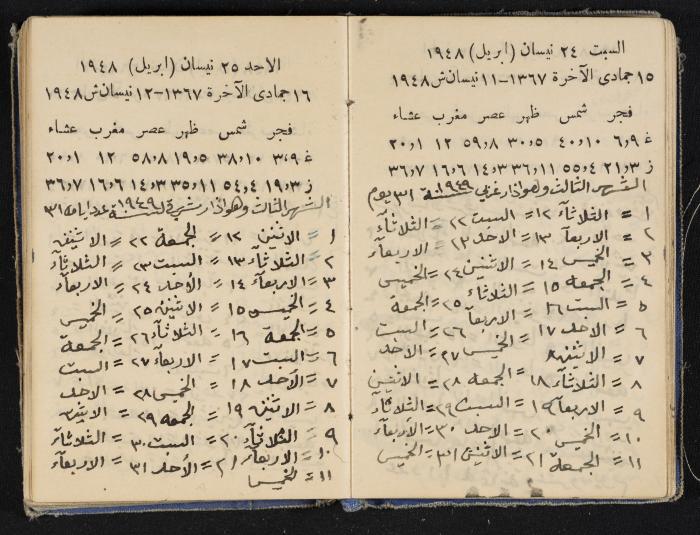 السبت ٢٤ نيسان (ابريل) ١٩٤٨
١٥ جمادى الآخرة ١٣٦٧–١١ نيسان ش ١٩٤٨
فجر شمس ظهر عصر مغرب عشاء
غ ٩و٦ ١٠و٤٠ ٥و٣٠ ٨و٥٩ ١٢ ١و٢٠
ز ٣و٢١ ٤و٥٥ ١١و٣٦ ٣و١٤ ٦و١٦ ٧و٣٦
الشهر الثالث وهو اذار غربي سنة ١٩٤٩ ٣١ يوم
١ = الثلاثآء ١٢ = السبت ٢٢ = الثلاثآء
٢ = الاربعآ ١٣ = الاحد ٢٣ = الاربعآء
٣ = الخميس ١٤ = الاثنين ٢٤ = الخميس
٤ = الجمعة ١٥ = الثلاثاء ٢٥ = الجمعة
٥ = السبت ١٦ = الاربعآ ٢٦ = السبت
٦ = الاحد ١٧ = الخميس ٢٧ = الاحد
٧ = الاثنين
٨ = الثلاثآء ١٨ = الجمعة ٢٨ = الاثنين
٩ = الاربعآء ١٩ = السبت ٢٩ = الثلاثآء
١٠ = الخميس ٢٠ = الاحد ٣٠ = الأربعآء
١١ = الجمعة ٢١ = الاثنين ٣١ = الخميس
الاحد ٢٥ نيسان (ابريل) ١٩٤٨
١٦ جمادى الآخرة ١٣٦٧–١٢ نيسان ش ١٩٤٨
فجر شمس ظهر عصر مغرب عشاء
غ ٩و٣ ١٠و٣٨ ٥و١٩ ٨و٥٨ ١٢ ١و٢٠
ز ٣و١٩ ٤و٥٤ ١١و٣٥ ٣و١٤ ٦و١٦ ٧و٣٦
الشهر الثالث وهو اذار شرقي لسنة ١٩٤٩ عدد ايامه ٣١
١ = الاثنين ١٢ = الجمعة ٢٢ = الاثنين
٢ = الثلاثآء ١٣ = السبت ٢٣ = الثلاثآء
٣ = الاربعآء ١٤ = الأحد ٢٤ = الاربعآء
٤ = الخميس ١٥ = الاثنين ٢٥ = الخميس
٥ = الجمعة ١٦ = الثلاثآء ٢٦ = الجمعة
٦ = السبت ١٧ = الاربعآء ٢٧ = السبت
٧ = الأحد ١٨ = الخميس ٢٨ = الاحد
٨ = الاثنين ١٩ = الجمعة ٢٩ = الاثنين
٩ = الثلاثآء ٢٠ = السبت ٣٠ = الثلاثآء
١٠ = الاربعآء ٢١ = الأحد ٣١ = الاربعآء
١١ = الخميس